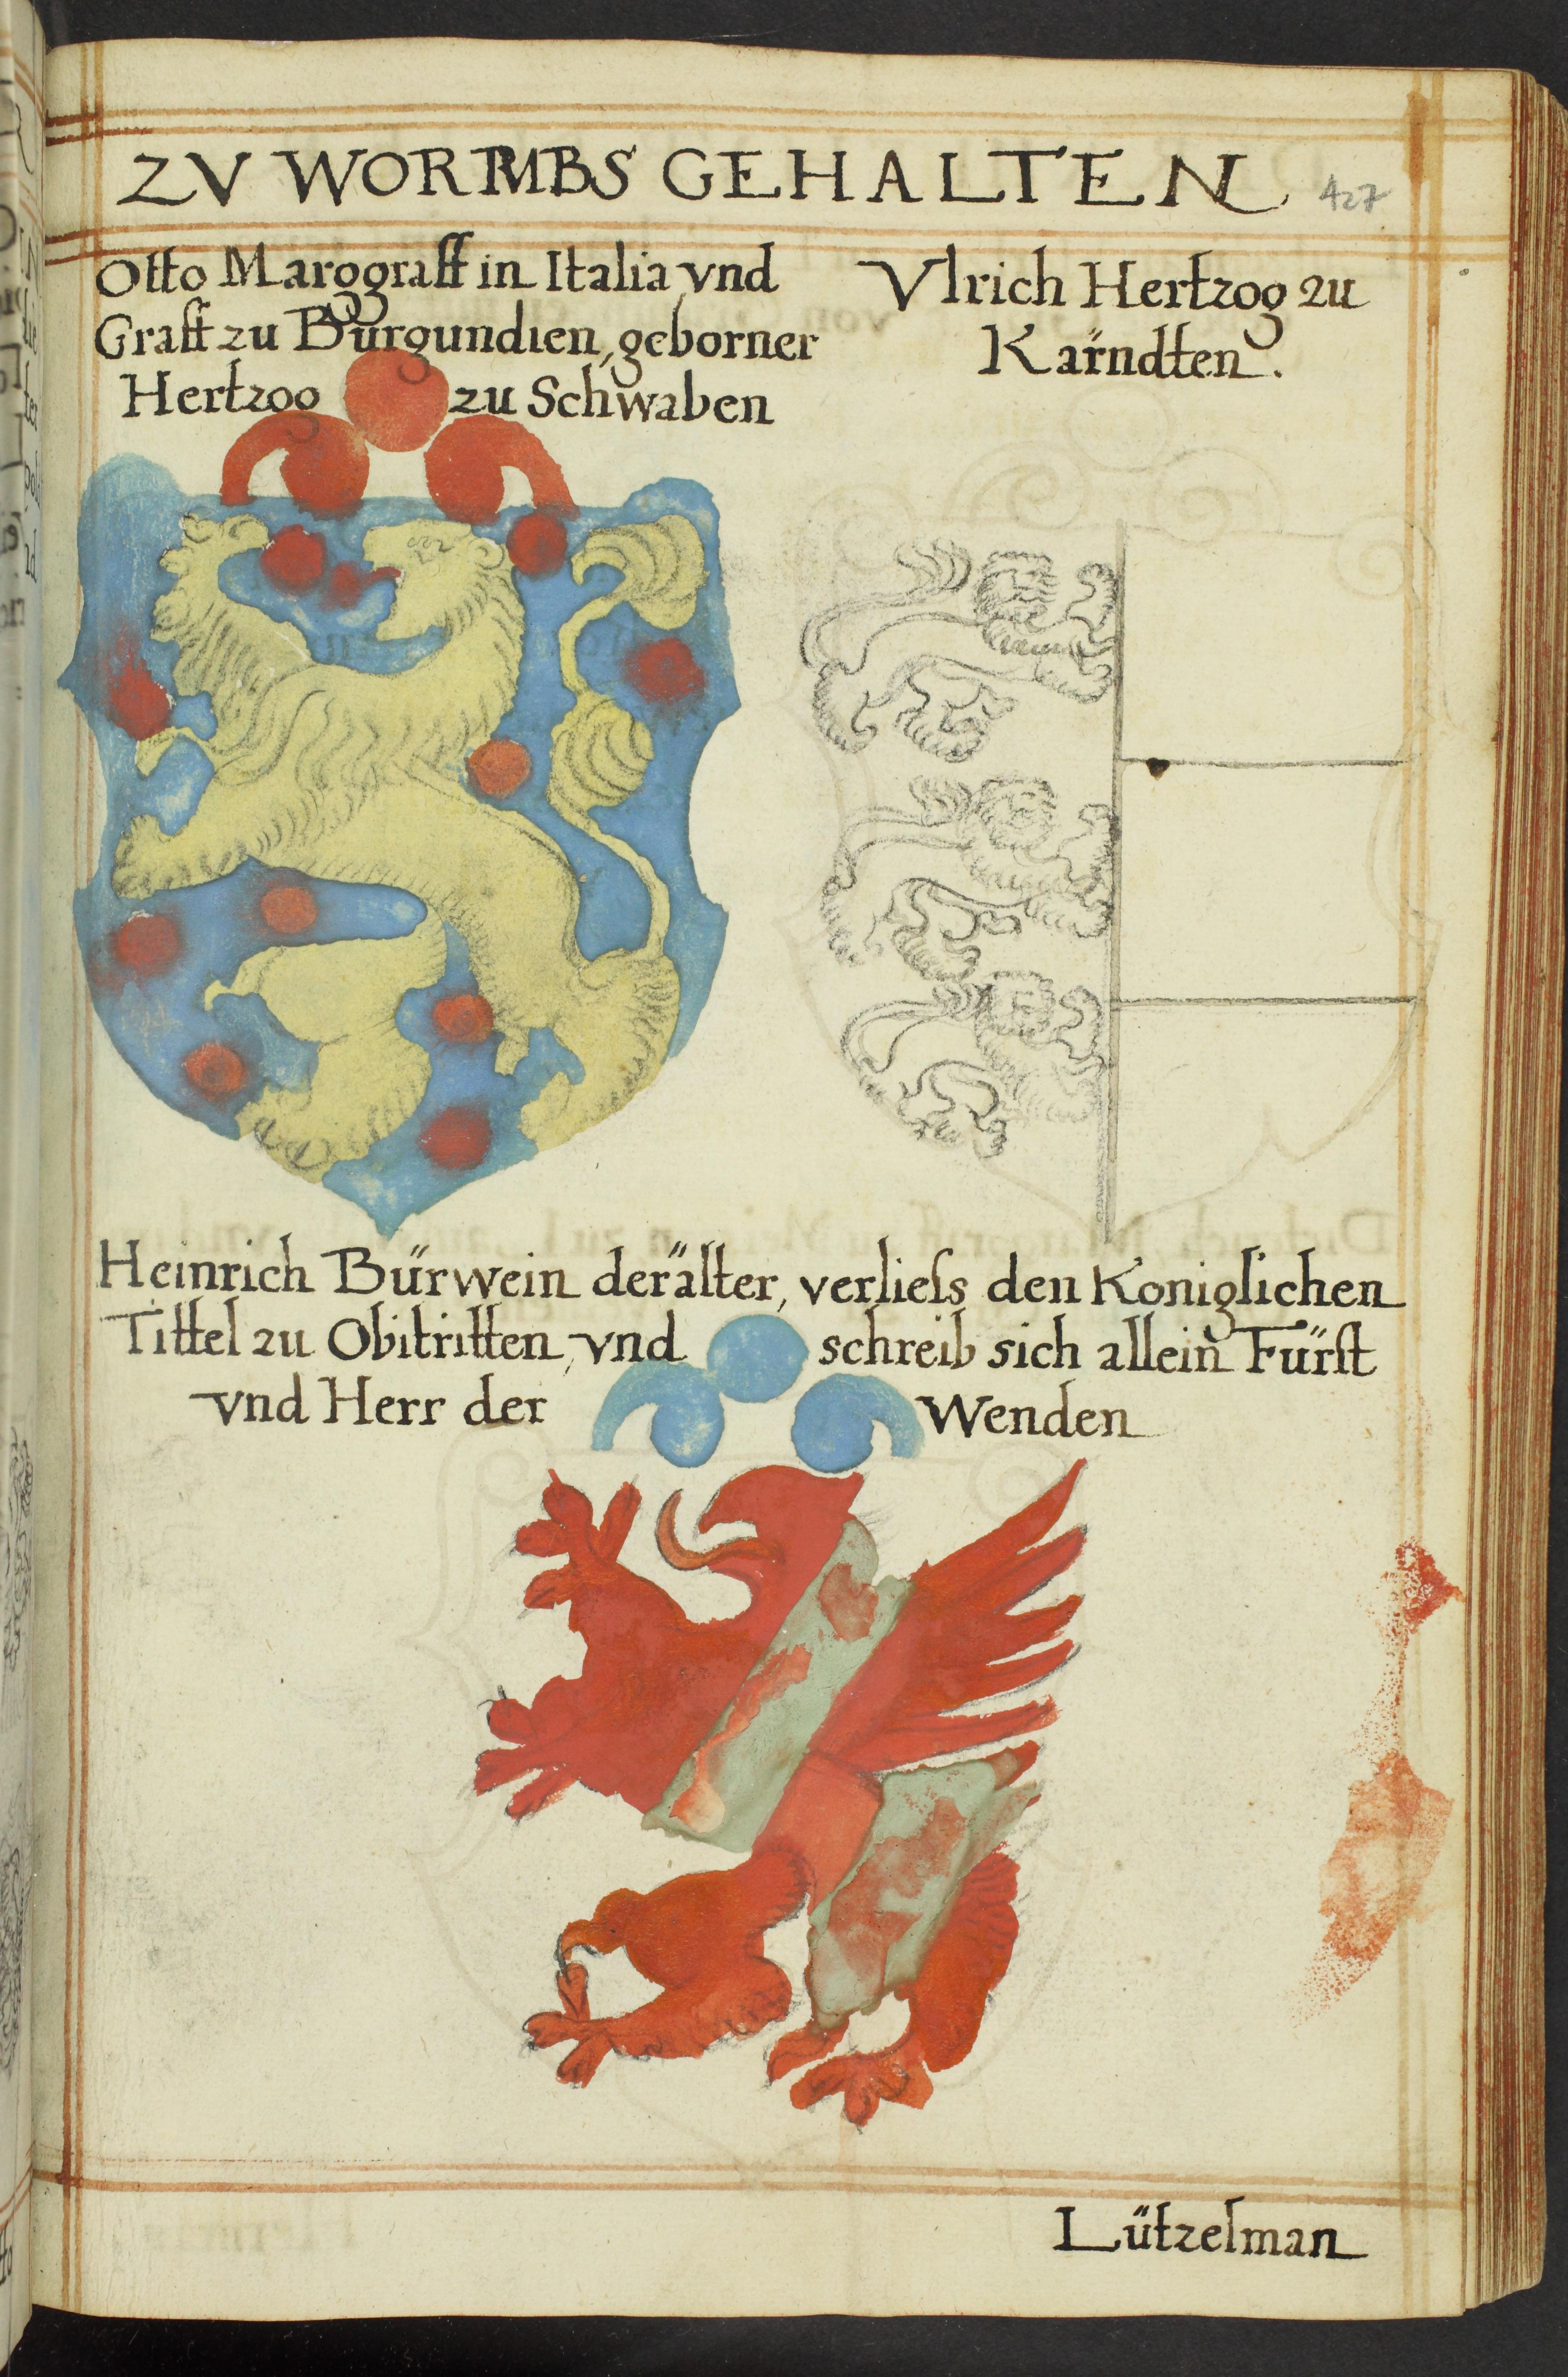 ZV WORMBS GEHALTEN
427
Otto Marggraff in Italia vnd
Graff zu Burgundien, geborner
Hertzog zu Schwaben
Vlrich Hertzog zu
Kärndten.
Heinrich Bürwein der älter, verliess den Koniglichen
Tittel zu Obitritten, vnd schreib sich allein Fürst
vnd Herr der Wenden
Lützelman